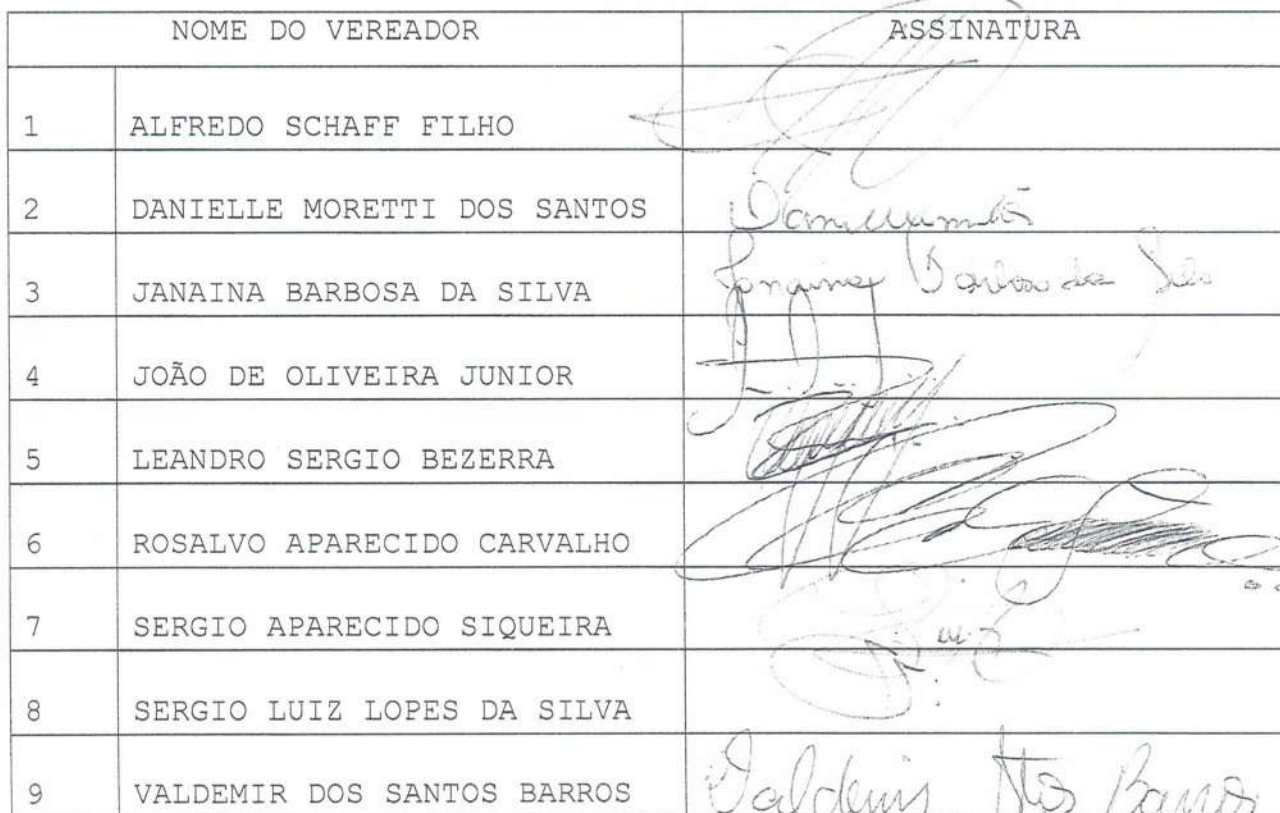 NOME DO VEREADOR ASSINATURA
1 ALFREDO SCHAFF FILHO
2 DANIELLE MORETTI DOS SANTOS
3 JANAINA BARBOSA DA SILVA Janaina Barbosa da Silva
4 JOÃO DE OLIVEIRA JUNIOR
5 LEANDRO SERGIO BEZERRA
6 ROSALVO APARECIDO CARVALHO
7 SERGIO APARECIDO SIQUEIRA
8 SERGIO LUIZ LOPES DA SILVA
9 VALDEMIR DOS SANTOS BARROS Valdemir Stos Barros